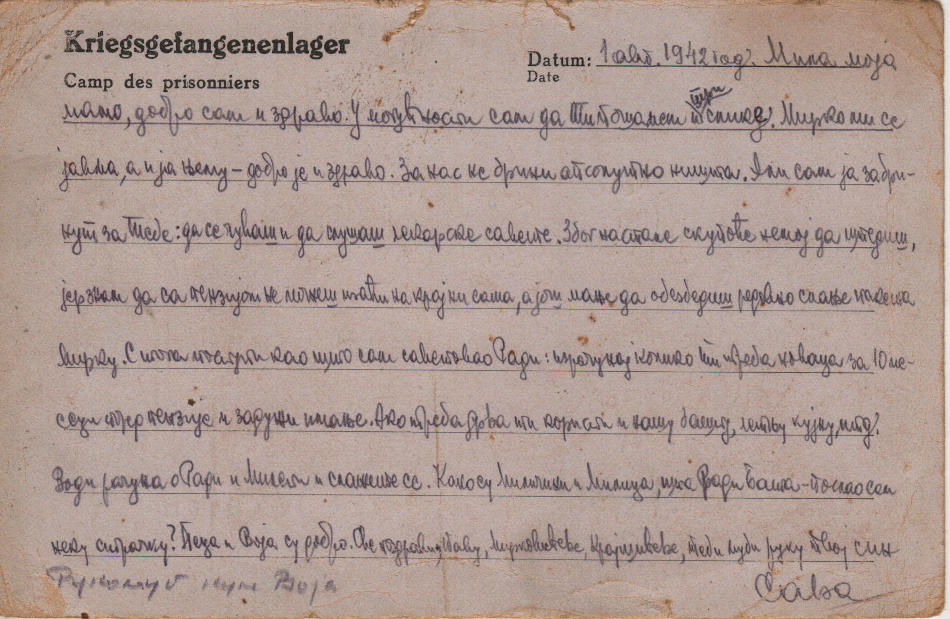 Kriegsgefangenenlager
Camp des prisonniers
Datum: 1 авг. 1942 год. Мила моја
Date
мамо, добро сам и здраво. У могућности сам да Ти пошаљем три слике! Мирко ми се
јавља, а и ја њему – добро је и здраво. За нас не брини апсолутно ништа. Али сам ја забри-
нут за Тебе: да се чуваш и да слушаш лекарске савете. Због настале скупоће немој да штедиш,
јер знам да са пензијом не можеш изаћи на крај ни сама, а још мање да обезбедиш редовно слање пакета
Мирку. С тога поступи као што сам саветовао Ради: израчунај колико Ти треба новаца за 10 ме-
сеци поред пензије и задужи имање. Ако треба дрва ти користи и нашу башту, летњу кујну, итд.
Води рачуна о Ради и и слажите се. Како су и Милица, шта ради Башта – послао сам
неку ? Пеца и Воја су добро. Све поздрави, теби љуби руку твој син
Рукољуб Воја
Сава